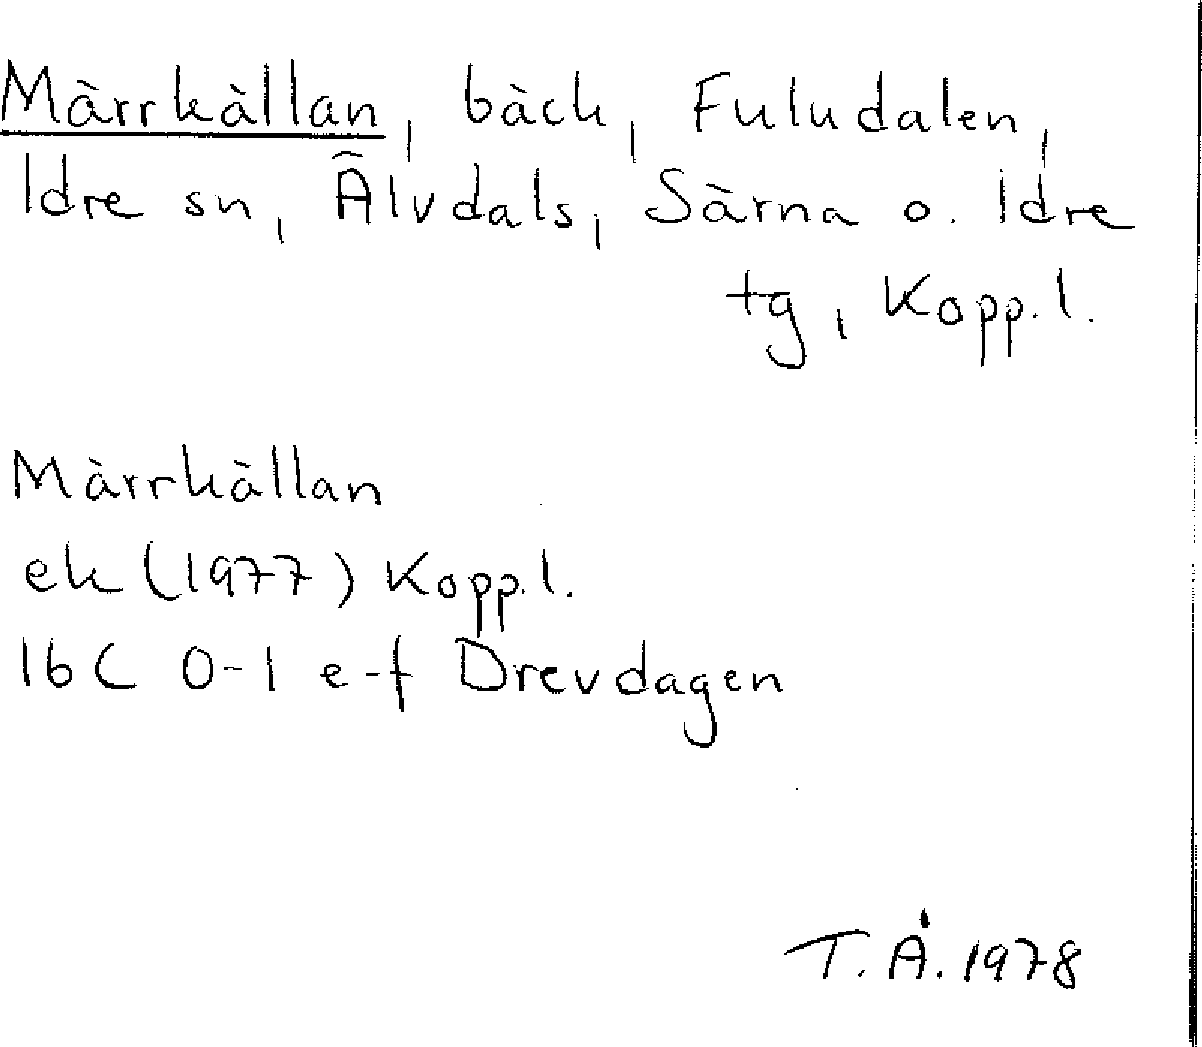 Märrkällan, bäck, Fuludalen,
Idre sn, Älvdals, Särna o. Idre
tg, Kopp. l.
Märrkällan
ek (1977) Kopp. l.
16 C 0-1 e-f Drevdagen
T. Å. 1978